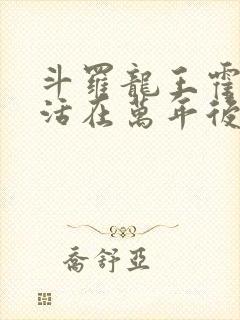 斗羅龍王霍
活在萬年後
喬舒亞